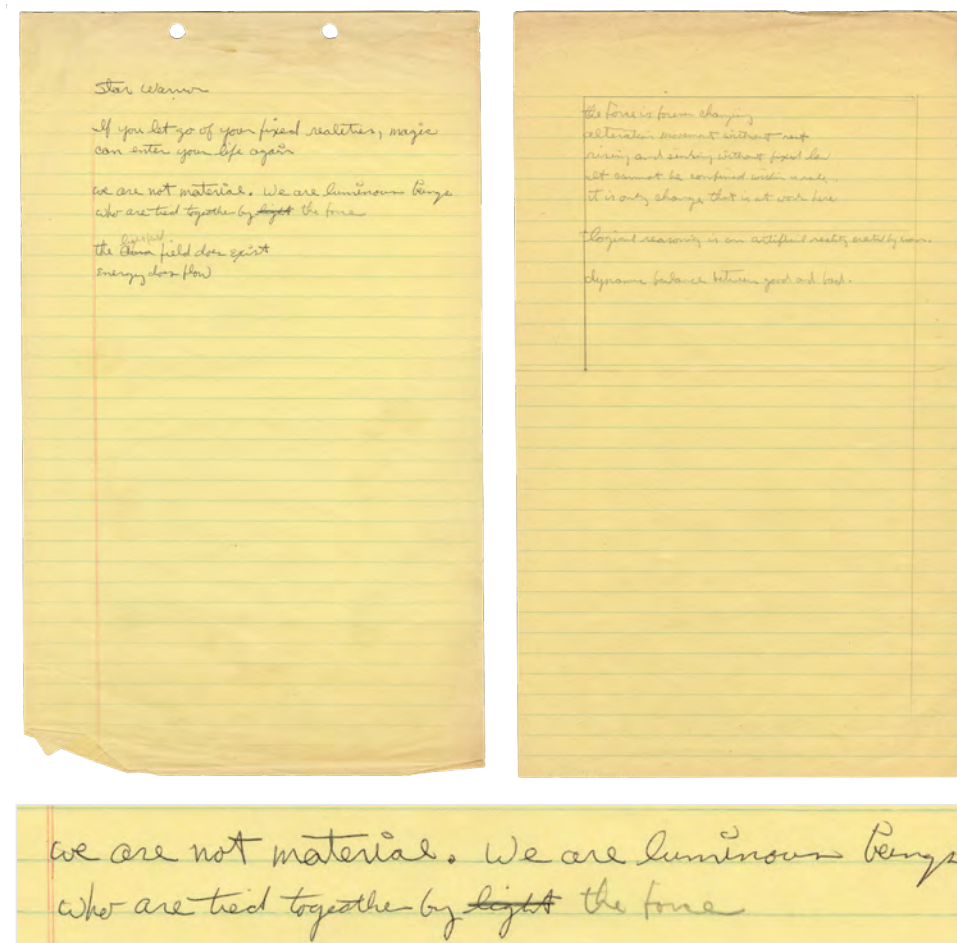 Star Warrior
If you let go of your fixed realities, magic
can enter your life again
we are not material. We are luminous beings
who are tied together by light the force
the field does exist
energy does flow
the Force is forever changing
alteration movement without rest
rising and sinking without fixed law
it cannot be confined within a rule.
it is only change that is at work here
logical reasoning is an artificial reality created by man.
dynamic balance between good and bad.
we are not material. We are luminous beings
who are tied together by light the force